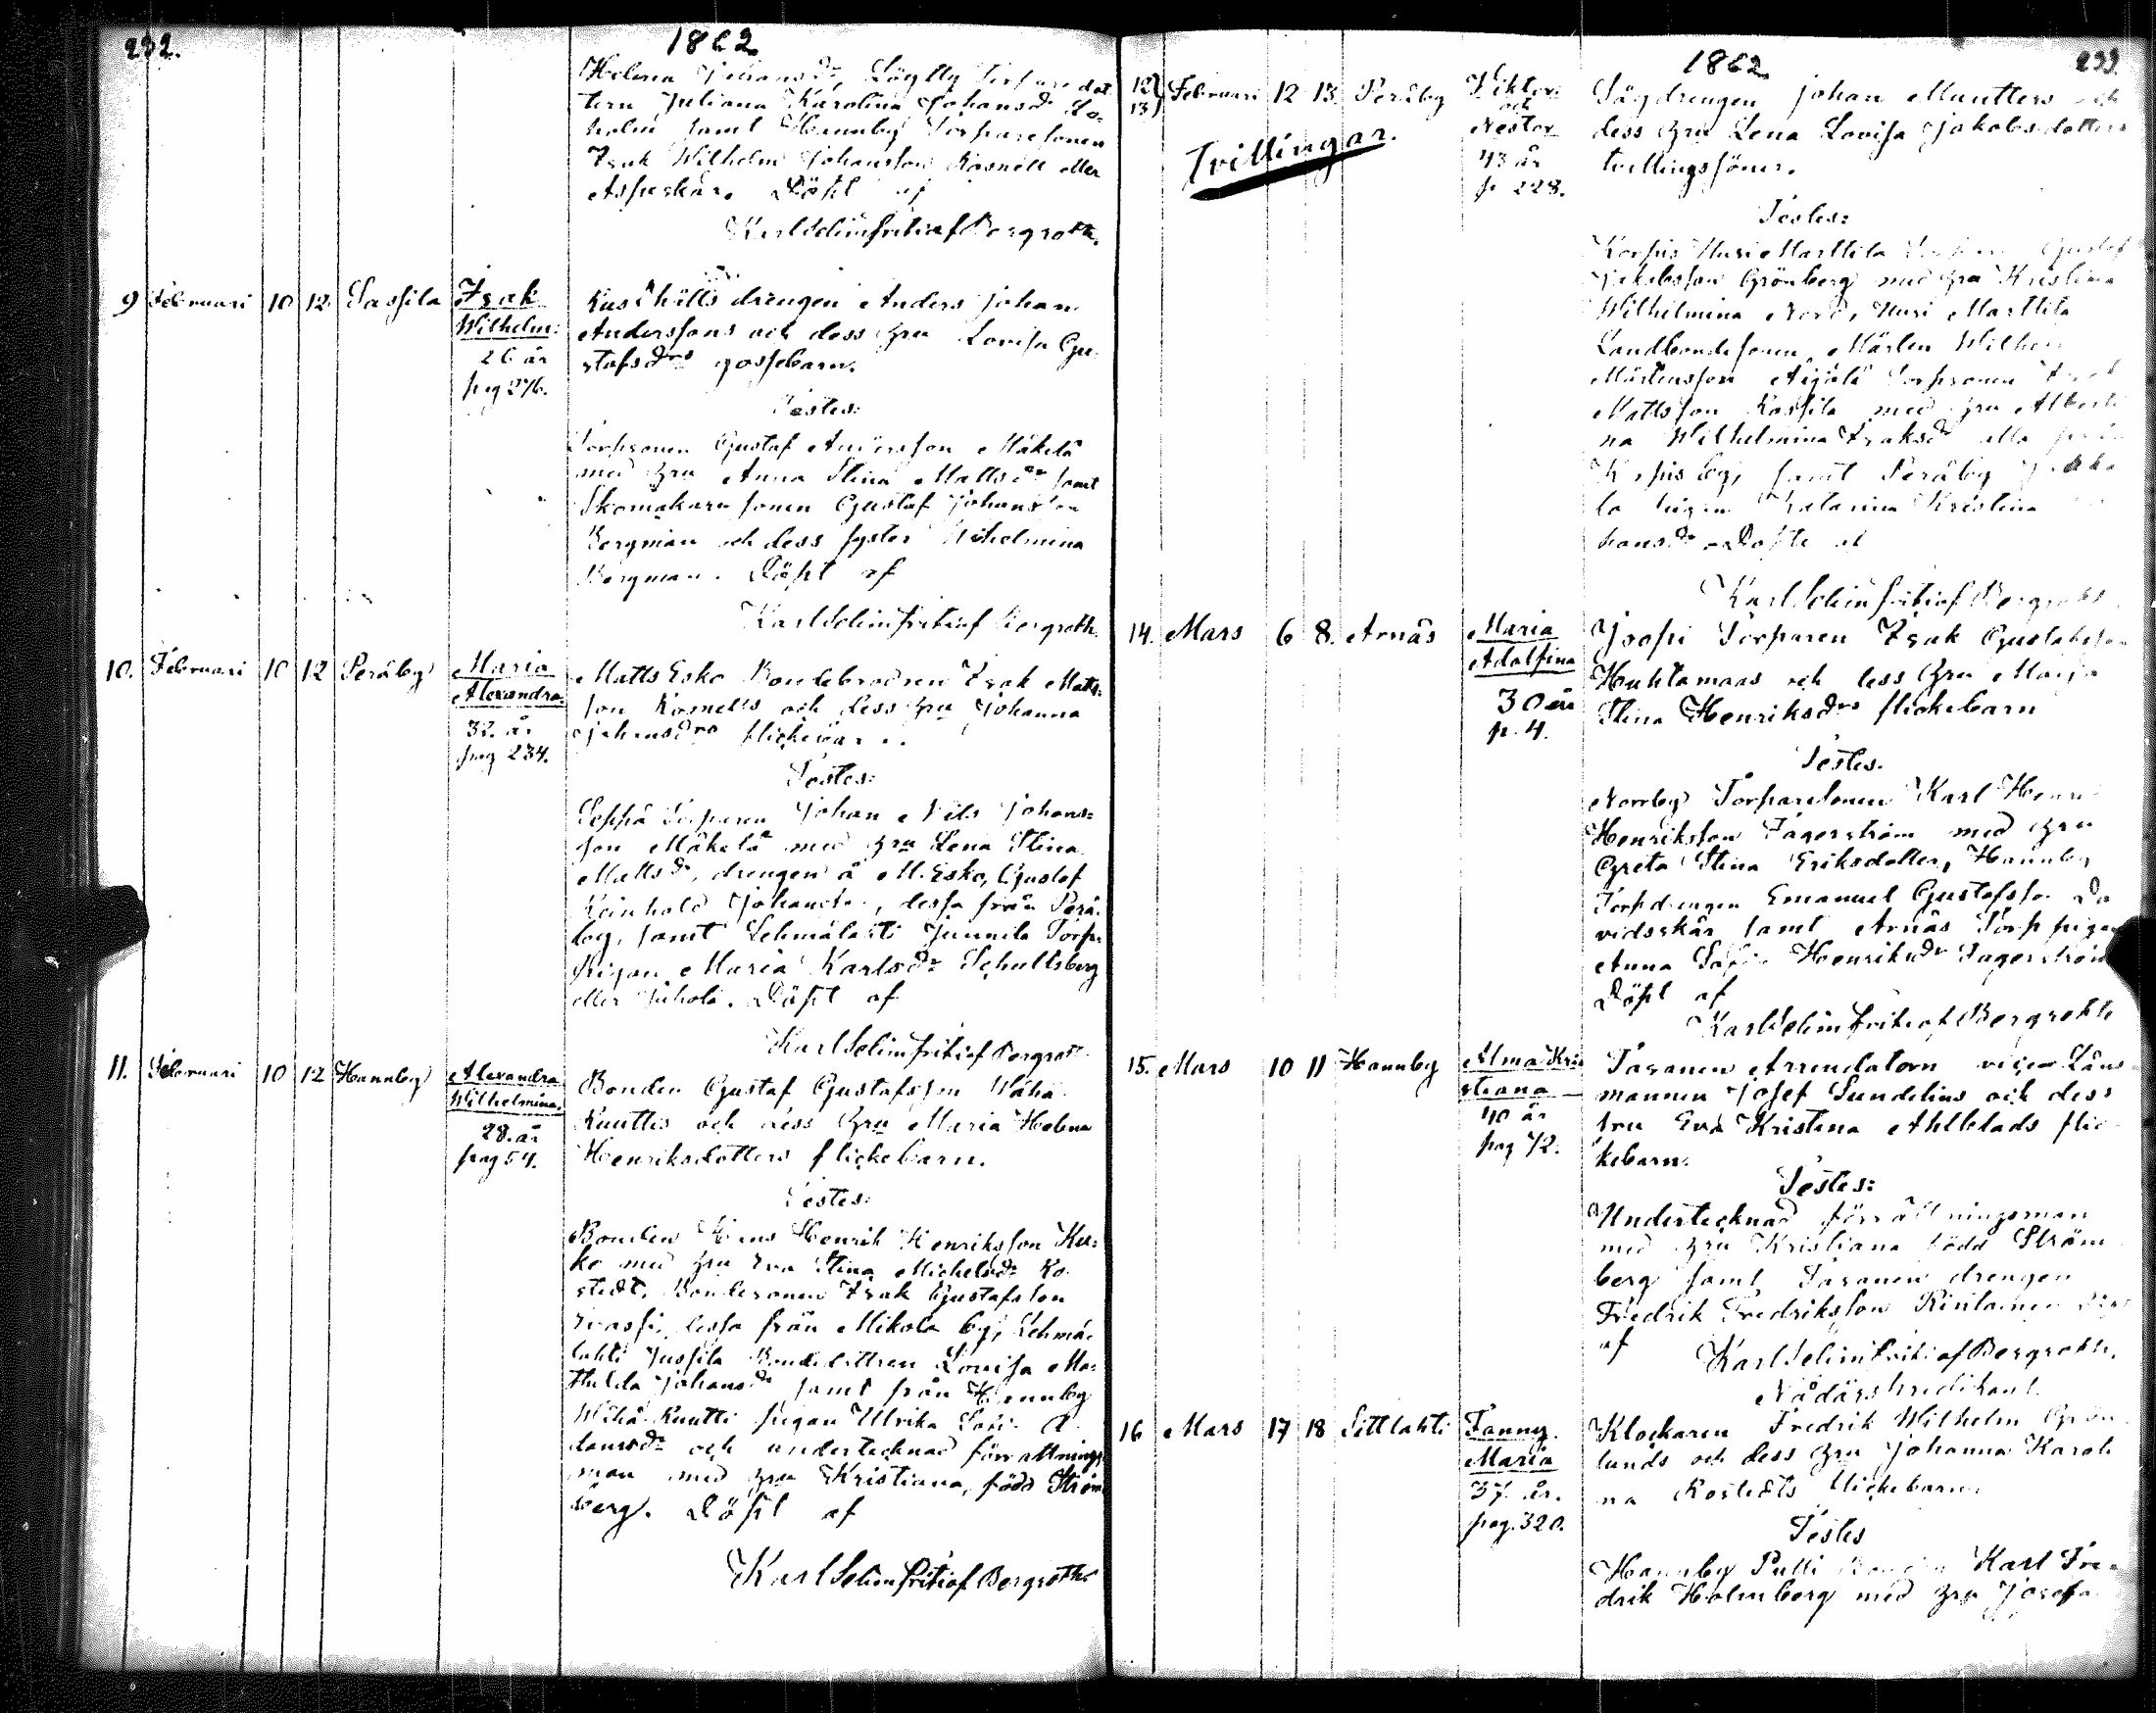 232.
1862
Helena Johansdr, Löytty Torparedot-
tern Juliana Karolina Johansdr
holm samt Hannby Torparesonen
Isak Wilhelm Johansson Kosnell eller
Aspeskär. Döpt af
Karl Selim Fritiof Bergroth.
9 Februari 10 12 Sassila Isak
Wilhelm:
26 år
pag 276.
Kusthålls drengen Anders Johan
Anderssons och dess hru Lovisa Gu-
stafsdrs gossebarn.
Testes:
Torpsonen Gustaf Andersson Mäkelä
med hru Anna Stina Mattsdr samt
Skomakare sonen Gustaf Johansson
Bergman och dess syster Wilhelmina
Bergman. Döpt af
Karl Selim Fritiof Bergroth.
10. Februari 10 12 Peräby Maria
Alexandra
32. år
pag 234.
Matts Esko Bondebrodren Isak Matts-
son Kosnells och dess hru Johanna
Johansdrs flickebarn.
Testes:
Seppä Torparen Johan Nils Johans-
son Mäkelä med hru Lena Stina
Mattsdr, drengen å M. Esko, Gustaf
Reinhold Johansson, dessa från Perä-
by, samt Lehmälahti Junnila Torp-
pigan Maria Karlsdr Schultsberg
eller Juhola. Döpt af
Karl Selim Fritiof Bergroth
11. Februari 10 12 Hannby Alexandra
Wilhelmina.
28. år
pag 54.
Bonden Gustaf Gustafsson Wähä
Kuuttis och dess hru Maria Helena
Henriksdotters flickebarn.
Testes:
Bonden Hans Henrik Henriksson
ko med hru Eva Stina Michelsdr Ro-
stedt, Bondesonen Isak Gustafsson
dessa från Mikola by, Lehmä-
lahti Jussila Bondedottren Lovisa Ma-
thilda Johansdr samt från Hannby
Wähä Kuutti pigan Ulrika Sofia A-
damsdr och undertecknad förrättnings-
man med hru Kristiana, född Ström-
berg. Döpt af
Karl Selim Fritiof Bergroth
1862
233.
12) 13) Februari 12 13. Peräby Viktor
och
Nestor
43 år
p 228.
Tvillingar.
Sågdrengen Johan Muntters och
dess hru Lena Lovisa Jakobsdotters
tvillingssöner.
Testes:
Korpis Uusi Marttila Gustaf
Jakobsson Grönberg med hru Kristina
Wilhelmina Nord, Uusi Marttila
Landbondesonen Mårten Wilhelm
Mårtensson Äijälä Torpsonen Isak
Mattsson Kassila med hru Alberti-
na Wilhelmina Isaksdr alla från
Korpis by, samt Peräby
la pigan Katarina Kristina
hansdr Döpte af
Karl Selim Fritiof Bergroth.
14. Mars 6 8. Arnäs Maria
Adolfina
30 år
p. 4.
Joopi Torparen Isak Gustafsson
Huhtamaas och dess hru Maria
Stina Henriksdrs flickebarn
Testes.
Norrby Torparesonen Karl Henrik
Henriksson Fagerström med hru
Greta Stina Eriksdotter, Hannby
Torpdrengen Emanuel Gustafsson Da-
vidsskär samt Arnäs Torppigan
Anna Sofia Henriksdr Fagerström
Döpt af
Karl Selim Fritiof Bergroth
15. Mars 10 11 Hannby Alma Kri-
stiana
40 år
pag 72.
Tasanen Arrendatorn vice Läns-
mannen Josef Sundelius och dess
fru Eva Kristina Ahlblads flic-
kebarn.
Testes:
Undertecknad förrättningsman
med hru Kristiana född Ström-
berg samt Tasanen drengen
Fredrik Fredriksson Rintanen
af
Karl Selim Fritiof Bergroth,
Nådårspredikant.
16 Mars 17 18 Sittlahti Fanny
Maria
37 år.
pag. 320.
Klockaren Fredrik Wilhelm Grön-
lunds och dess hru Johanna Karoli-
na Rostedts flickebarn.
Testes
Hannby Putti Karl Fre-
drik Holmberg med hru Josefa